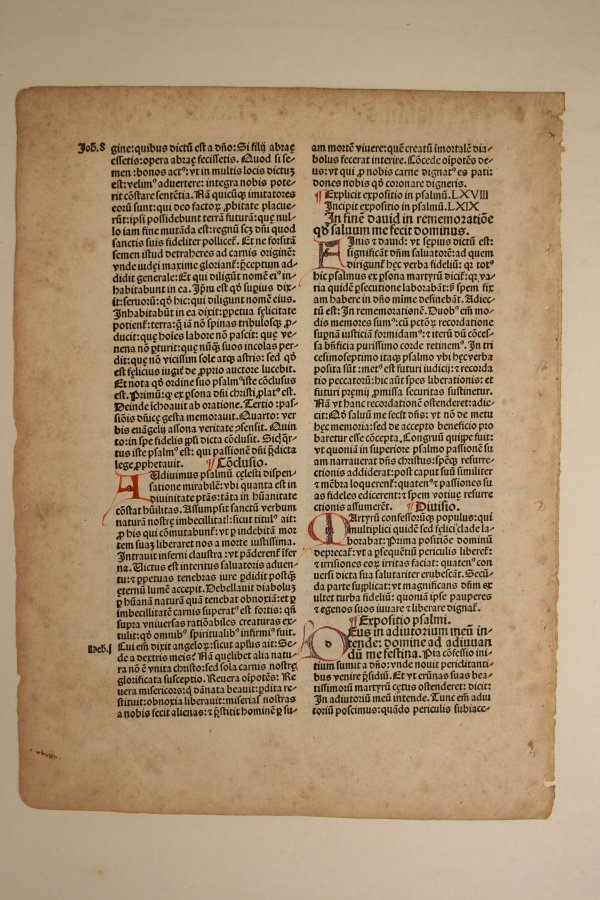 Joh. 8
gine: quibus dictũ est a dño: Si filij abraę
essetis: opera abraę fecissetis. Quod si se-
men: bonos actꝰ: vt in multis locis dictuȝ
est: velimꝰ aduertere: integra nobis pote-
rit cõstare sentẽtia. Nã quicũqȝ imitatores
eorũ sunt: qui deo factor ꝓbitate placue-
rũt: ipsi possidebunt terrã futurã: quę nul-
lo iam fine mutãda est: regnũ scȝ dñi quod
sanctis suis fideliter pollicet̃. Et ne forsitã
semen istud detraheres ad carnis originẽ:
vnde iudęi maxime gloriant̃: p̃ceptum ad-
didit generale: Et qui diligũt nomẽ eiꝰ in-
habitabunt in ea. Jp̃m est qđ supius dix-
it: seruoꝝ: qđ hic: qui diligunt nomẽ eius.
Jnhabitabũt in ea dixit: ꝑpetua felicitate
potient̃: terra: q̃ iã nõ spinas tribulosqȝ ꝓ-
ducit: quę hoĩes labore nõ pascit: quę ve-
nena nõ ꝑturit: quę nũqȝ suos incolas per-
dit: quę nõ vicissim sole atqȝ astris: sed qđ
est felicius iugit̃ de ꝓprio auctore lucebit.
Et nota qđ ordine suo psalmꝰ iste cõclusus
est. Primũ: q̃ ex ꝑsona dñi christi ꝓlatꝰ est.
Deinde ĩchoauit ab oratione. Tertio: pas-
siõis dñicę gesta memorauit. Quarto: ver-
bis euãgelij assona veritate ꝓsensit. Quin-
to: in spe fidelis pp̃li dicta cõclusit. Sic
tus iste psalmꝰ est: qui passionẽ dñi p̃dicta
lege ꝓphetauit. ¶ Cõclusio.
Audiuimus psalmũ cęlesti dispen-
satione mirabilẽ: vbi quanta est in
diuinitate ptãs: tãta in hũanitate
cõstat hũilitas. Assumpsit sanctũ verbum
naturã nostrę imbecillitatĩ: sicut titulꝰ ait:
ꝓ his qui cõmutabunt̃: vt ꝑ indebitã mor
tem suaȝ liberaret nos a morte iustissima.
Jntrauit inferni claustra: vt pãderent̃ ifer
na. Uictus est interitus saluatoris aduen-
tu: & ꝑpetuas tenebras iure ꝑdidit postqȝ
ęternũ lumẽ accepit. Debellauit diaboluȝ
ꝑ hũanã naturã quã tenebat obnoxiã: et ꝑ
imbecillitatẽ carnis superatꝰ est fortis: qui
supra vniuersas ratiõabiles creaturas ex-
tulit: qđ omnibꝰ spiritualibꝰ infirmiꝰ fuit.
Heb. j
Cui em̃ dixit angeloꝝ: sicut aplus ait: Se-
de a dextris meis? Nã quęlibet alia natu-
ra nõ ẽ vnita christo: sed sola carnis nostrę
glorificata susceptio. Reuera oĩpotẽs: Re
uera misericors: q̃ dãnata beauit: ꝑdita re-
stituit: obnoxia liberauit: miserias nostras
a nobis fecit alienas: & p̃stitit hominẽ ꝑ su-
am mortẽ viuere: quẽ creatũ ĩmortalẽ dia-
bolus fecerat interire. Cõcede oĩpotẽs de-
us: vt qui ꝓ nobis carne dignatꝰ es pati:
dones nobis qđ coronare digneris.
¶ Explicit expositio in psalmũ. LXVIII
Jncipit expositio in psalmũ. LXIX
In finẽ dauid in rememoratiõe
qđ saluum me fecit dominus.
Finis & dauid: vt sępius dictũ est:
significãt dñm saluatorẽ: ad quem
dirigunt̃ hęc verba fideliũ: q̃ totꝰ
hic psalmus ex ꝑsona martyrũ dicit̃: q̃ va-
ria quidẽ ꝑsecutione laborabãt: sꝫ spem fix
am habere in dño mĩme desinebãt. Adiec-
tũ est: Jn rememorationẽ. Duobꝰ em̃ mo-
dis memores sumꝰ: cũ pctõꝝ recordatione
supnã iusticiã formidamꝰ: & iterũ dũ cõces-
sa bñficia purissimo corde retinemꝰ. Jn tri
cesimoseptimo itaqȝ psalmo vbi hęc verba
posita sũt: metꝰ est futuri iudicij: & recorda
tio peccatoꝝ: hic aũt spes liberationis: et
futuri p̃emij ꝓmissa securitas sustinetur.
Nã vt hanc recordationẽ ostenderet: adie-
cit: Qđ saluũ me fecit dñs: vt nõ de metu
hęc memoria: sed de accepto beneficio pro
baretur esse cõcepta. Cõgruũ quippe fuit:
vt quoniã in superiore psalmo passionẽ su
am narrauerat dñs christus: spemqȝ resurre-
ctionis addiderat: post caput suũ similiter
& mẽbra loquerent̃: quatenꝰ & passiones su
as fideles edicerent: & spem votiuę resurre
ctionis assumerẽt. ¶ Diuisio.
Martyrũ confessorũqȝ populus: qui
multiplici quidẽ sed felici clade la-
borabat: Prima positiõe dominũ
deprecat̃: vt a ꝑsequẽtiũ periculis liberet̃:
& irrisiones eoꝝ irritas faciat: quatenꝰ con
uersi dicta sua salutariter erubescãt. Secũ-
da parte supplicat: vt magnificans dñm ex
ultet turba fideliũ: quoniã ipse pauperes
& egenos suos iuuare & liberare dignat̃.
¶ Expositio psalmi.
Deus in adiutorium meũ in-
tende: domine ad adiuuan
dũ me festina. Pia cõfessio ini-
tium sumit a dño: vnde nouit periclitanti-
bus venire p̃sidiũ. Et vt ęrũnas suas bea-
tissimorũ martyrũ cętus ostenderet: dicit:
Jn adiutoriũ meũ intende. Tunc em̃ adiu
toriũ poscimus: quãdo periculis subiace-